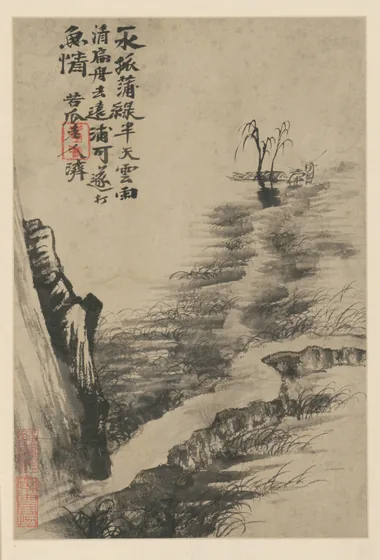 一水菰蒲綠半天雲雨
清扁舟去遠浦可遂打
魚情 苦瓜 濟